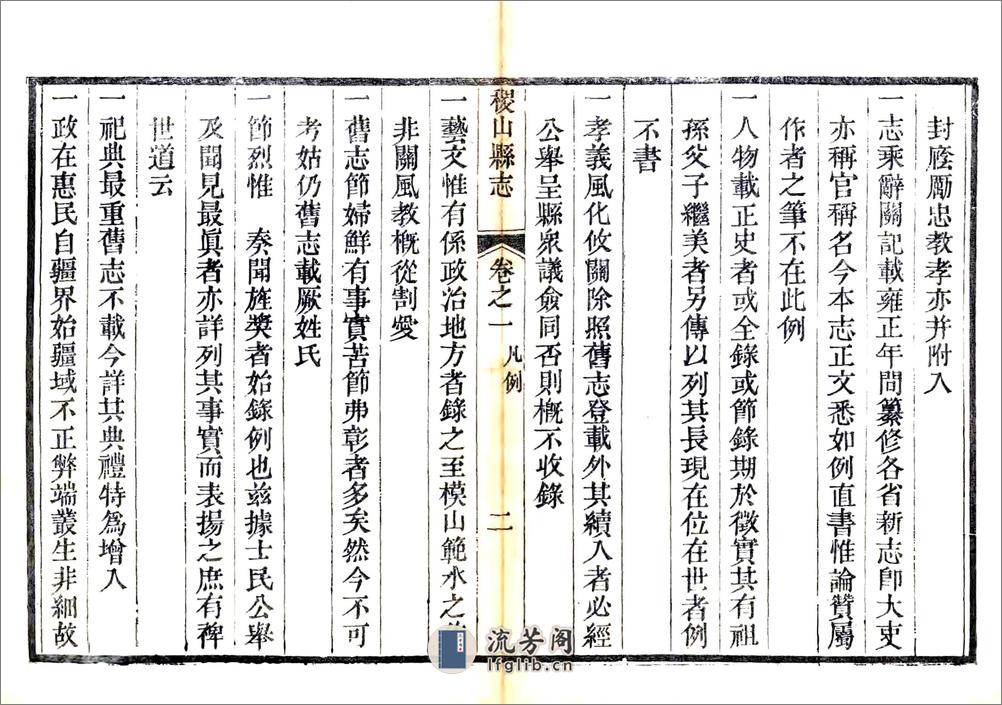 封廕勵忠教孝亦并附入
一志乘辭關記載雍正年間纂修各省新志即大吏
亦稱官稱名今本志正文悉如例直書惟論贊屬
作者之筆不在此例
一人物載正史者或全錄或節錄期於徵實其有祖
孫父子繼美者另傳以列其長現在位在世者例
不書
一孝義風化攸關除照舊志登載外其續入者必經
公舉呈縣衆議僉同否則概不收錄
稷山縣志
卷之一
凡例
二
一藝文惟有係政治地方者錄之至模山範水之
非關風教概從割愛
一舊志節婦鮮有事實苦節弗彰者多矣然今不可
考姑仍舊志載厥姓氏
一節烈惟 奏聞旌獎者始錄例也茲據士民公舉
及聞見最眞者亦詳列其事實而表揚之庶有裨
世道云
一祀典最重舊志不載今詳其典禮特爲增入
一政在惠民自疆界始疆域不正弊端叢生非細故
流芳阁
lfglib.cn